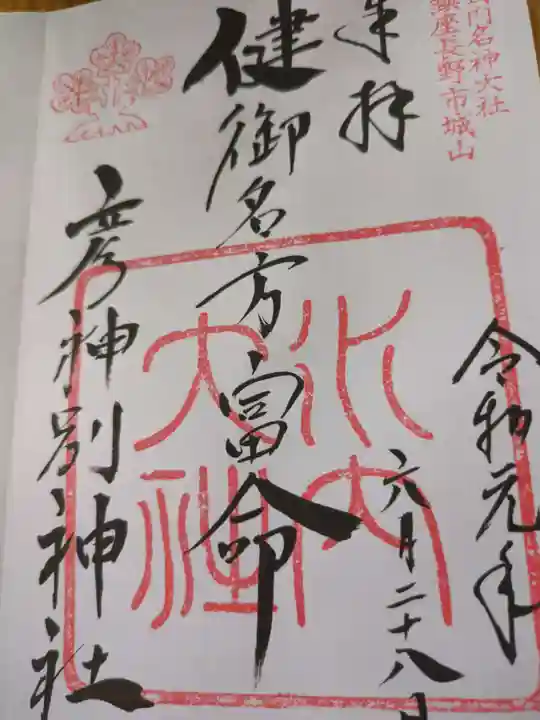 名神大社
鎮座長野市城山
奉拝
令和元年
六月二十八日
健御名方富命
彦神別神社
水内大社